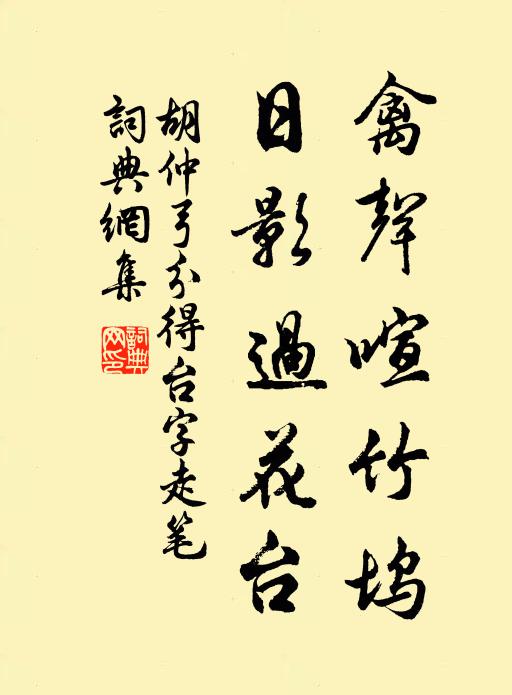 禽聲喧竹塢
日影過花台
胡仲弓分得台字走笔
詞典網集
詞典网印